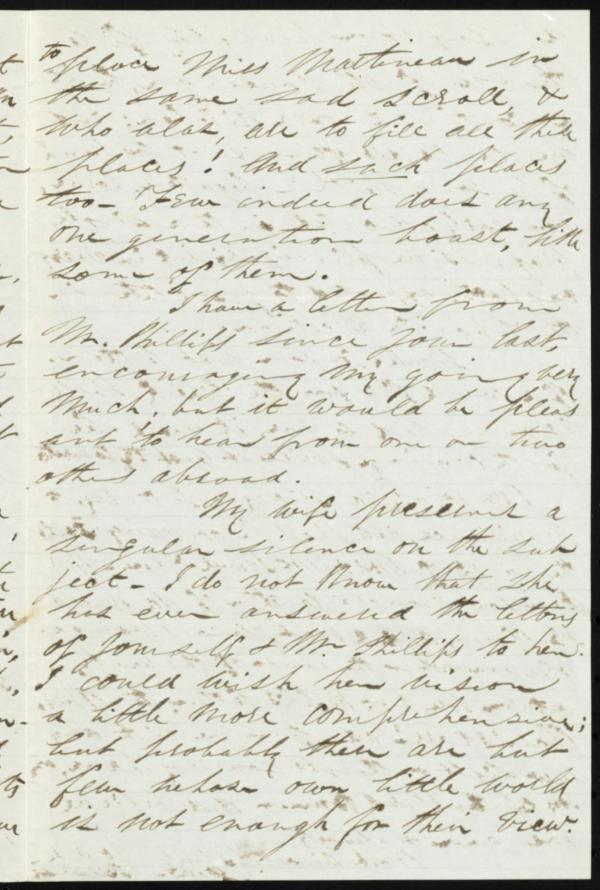 to place Miss Martineau in
the same sad scroll, &
who alas, are to fill all their
places! And such places
too - Few indeed does any
one generation boast, like
some of them.
I have a letter from
Mr. Phillips since your last,
encouraging my going very
much, but it would be pleas
ant to hear from one or two
others abroad.
My wife preserves a
singular silence on the sub
ject - I do not know that she
has ever answered the letters
of yourself & Mr. Phillips to her.
I could wish her vision
a little more comprehensive;
but probably there are but
few whose own little world
is not enough for their view.